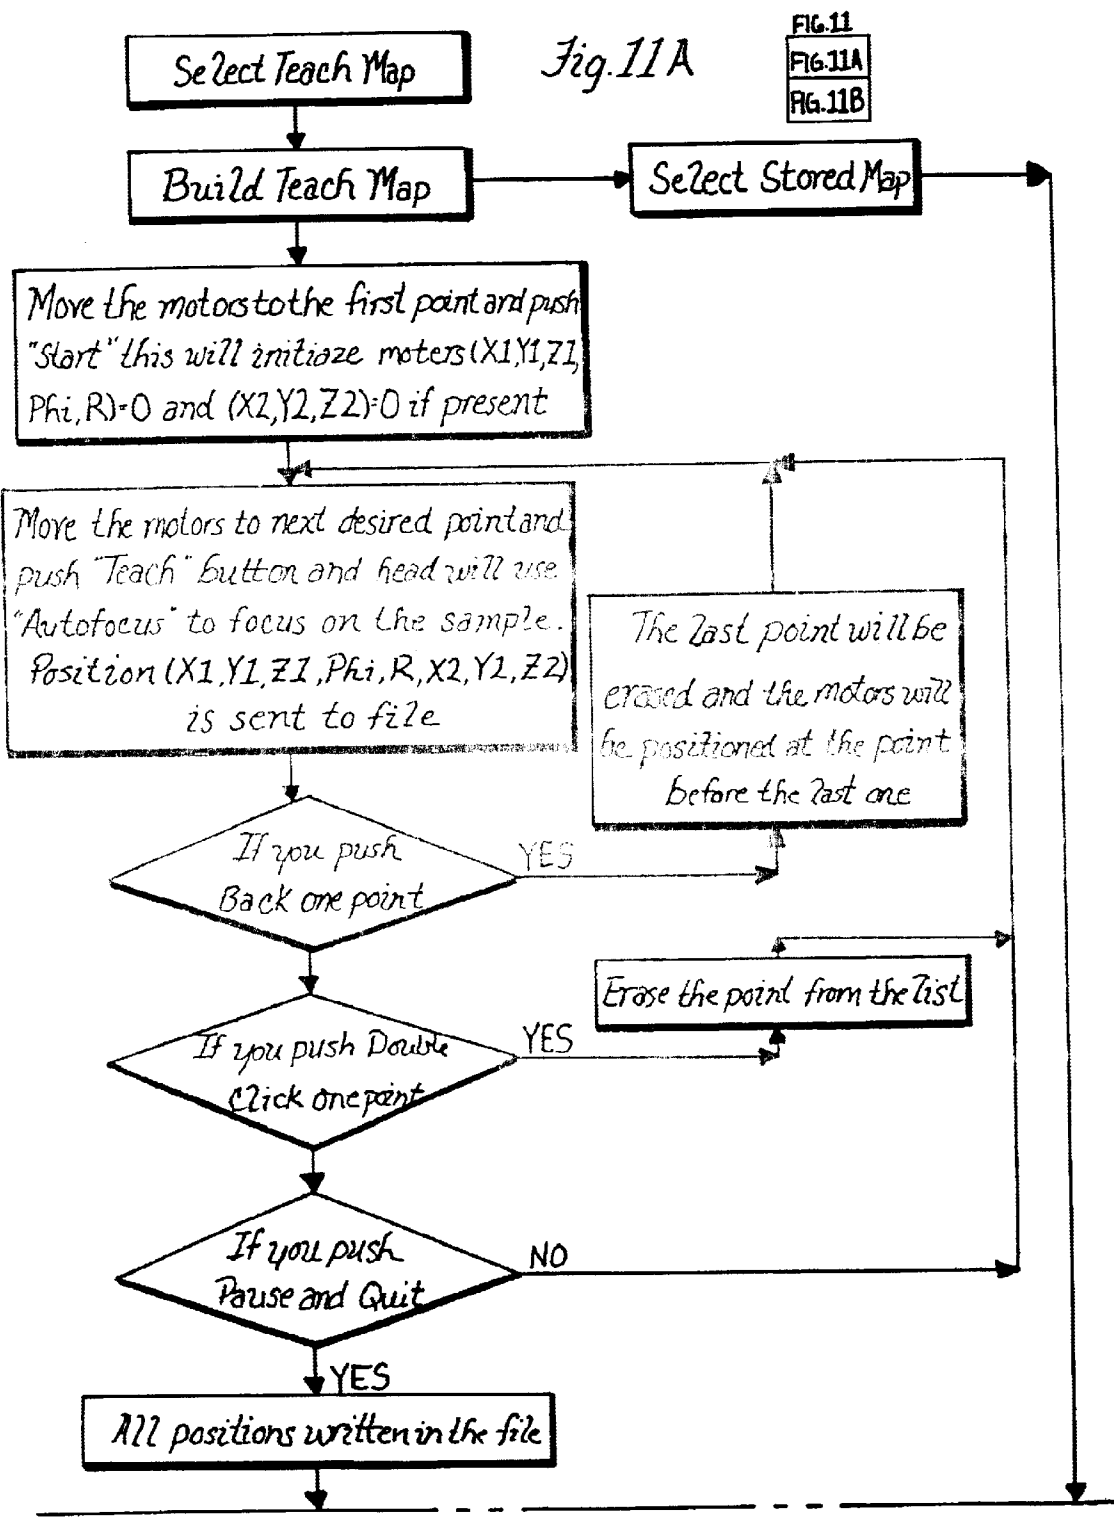 Fig.11A
FIG.11
FIG.11A
FIG.11B
Select Teach Map
Build Teach Map
Select Stored Map
Move the motors to the first point and push
"Start" this will initiaze moters (X1,Y1,Z1,
Phi, R)=0 and (X2,Y2,Z2)=0 if present
Move the motors to next desired point and
push "Teach" button and head will use
"Autofocus" to focus on the sample.
Position (X1,Y1,Z1,Phi,R,X2,Y2,Z2)
is sent to file
The last point will be
erased and the motors will
be positioned at the point
before the last one
If you push
Back one point
YES
Erase the point from the list
If you push Double
Click one point
YES
If you push
Pause and Quit
NO
YES
All positions written in the file